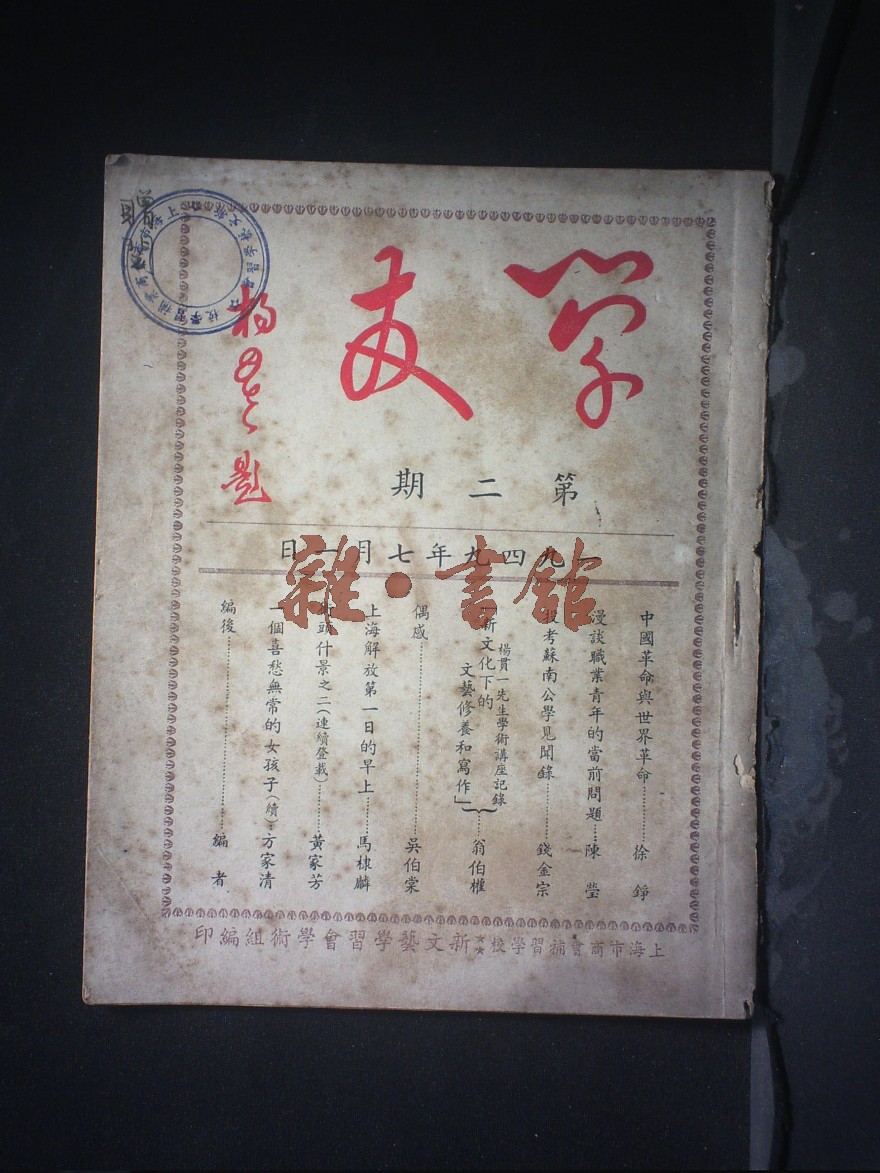 學友
題
第二期
一九四九年七月一日
雜·書館
中國革命與世界革命………徐錚
漫談職業青年的當前問題……陳瑩
投考蘇南公學見聞錄………錢金宗
楊貫一先生學術講座記錄
「新文化下的
文藝修養和寫作」………翁伯權
偶感………吳伯棠
上海解放第一日的早上………馬棣麟
街頭什景之二(連續登載)………黃家芳
一個喜愁無常的女孩子(續)…方家清
編後………編者
上海市商會補習學校新文藝學習會學術組編印